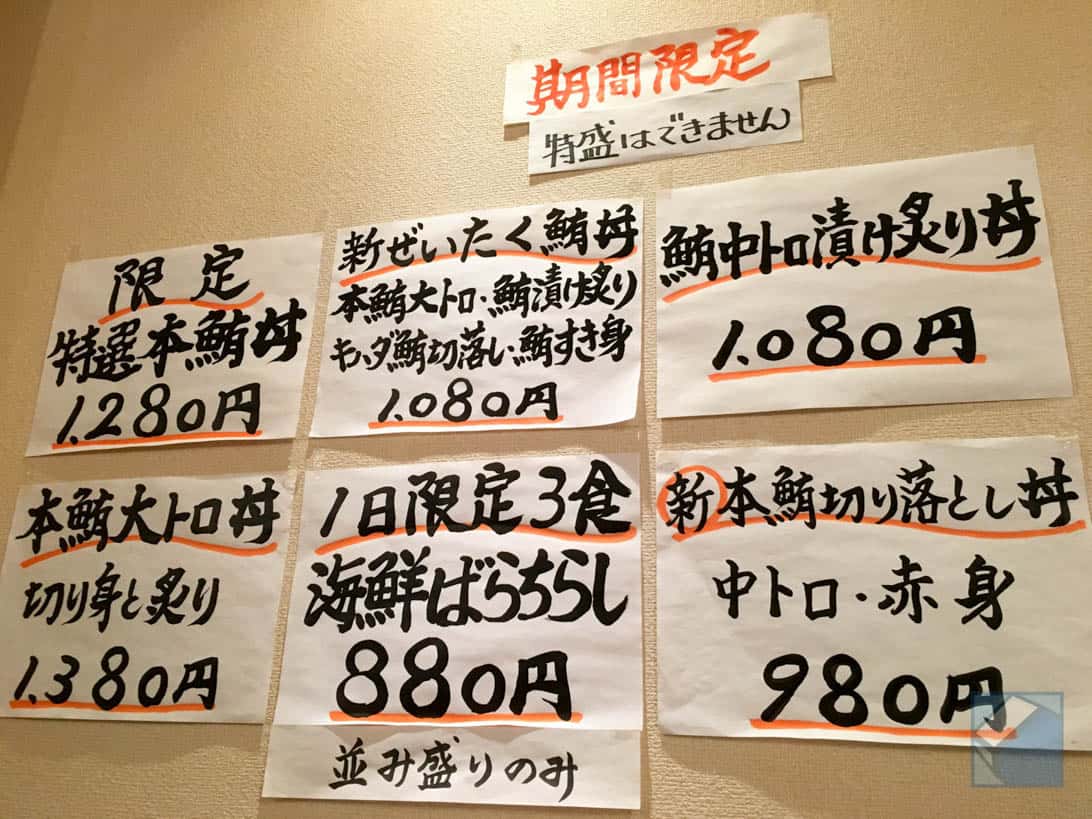 期間限定
特盛はできません
限定
特選本鮪丼
1.280円
新ぜいたく鮪丼
本鮪大トロ・鮪漬け炙り
キハダ鮪切落し・鮪すき身
1.080円
鮪中トロ漬け炙り丼
1.080円
本鮪大トロ丼
切り身と炙り
1.380円
1日限定3食
海鮮ばらちらし
880円
並み盛りのみ
新本鮪切り落とし丼
中トロ・赤身
980円